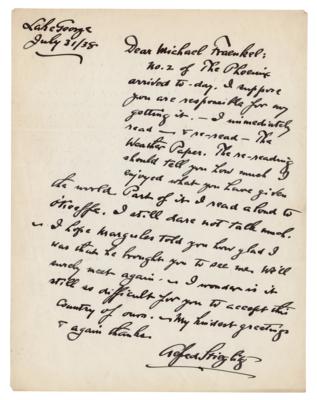 Lake George
July 31/38
Dear Michael Fraenkel:
No. 2 of The Phoenix
arrived to-day. I suppose
you are responsible for my
getting it. — I immediately
read — & re-read — The
Weather Paper. The re-reading
should tell you how much I
enjoyed what you have given
the world. Part of it I read aloud to
O'Keeffe. I still dare not talk much.
— I hope Margules told you how glad I
was that he brought you to see me. We'll
surely meet again. — I wonder is it
still so difficult for you to accept this
Country of ours. — My kindest greetings
& again thanks.
Alfred Stieglitz